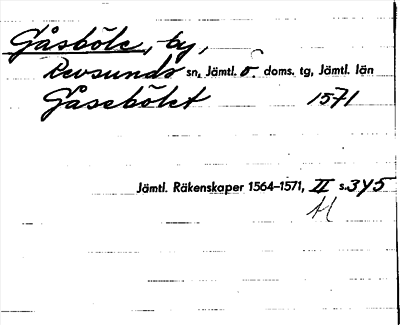 Gåsböle, by,
Revsunds sn, Jämtl. ö. doms. tg, Jämtl. län
Gåsebölet 1571
Jämtl. Räkenskaper 1564–1571, II s. 345